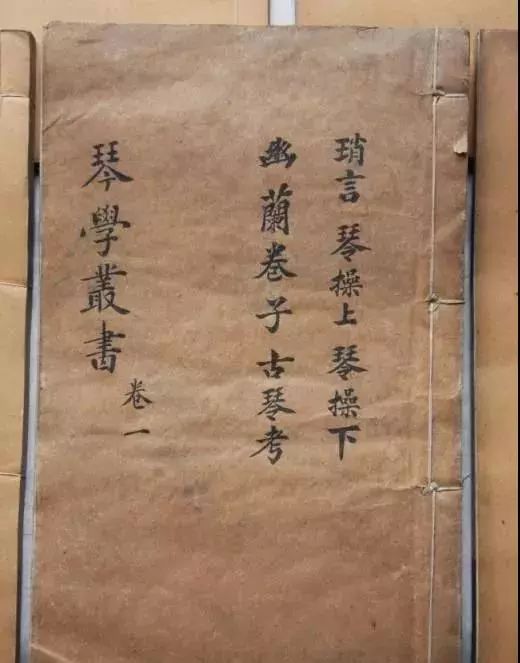 瑣言 琴操上 琴操下
幽蘭卷子 古琴考
琴學叢書 卷一